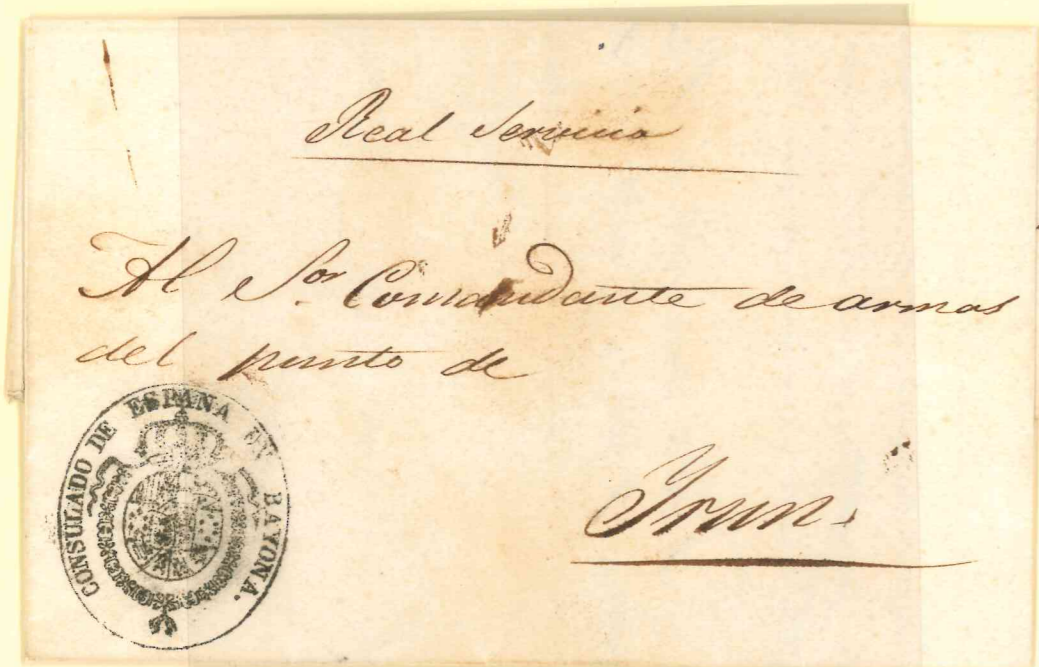 Real Servicio
Al Sor. Comandante de armas
del punto de
Yrun.
CONSULADO DE ESPAÑA EN BAYONA.